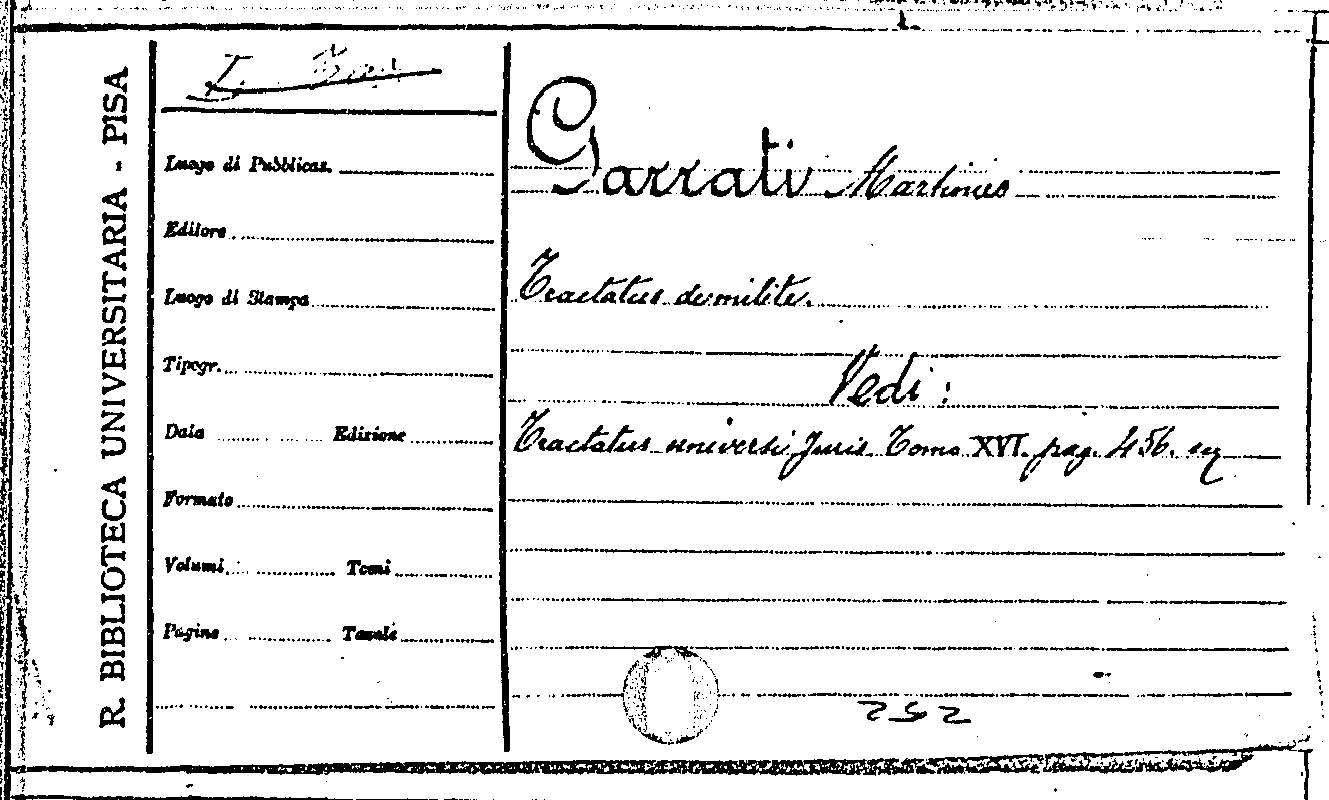 R. BIBLIOTECA UNIVERSITARIA - PISA
Luogo di Pubblicaz.
Editore
Luogo di Stampa
Tipogr.
Data Edizione
Formato
Volumi Tomi
Pagine Tavole
Garrati Martinus
Tractatus de milite.
Vedi:
Tractatus universi Juris Tomo XVI. pag. 456.
252